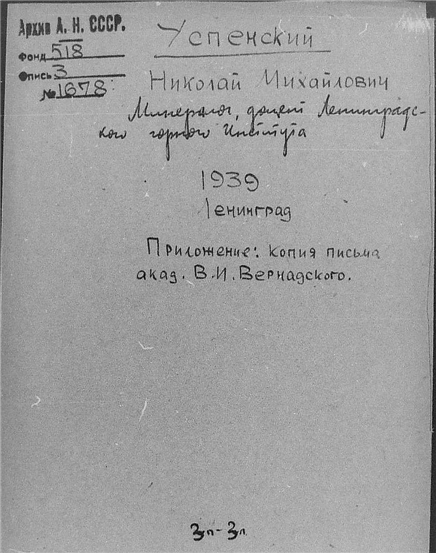 Архив А. Н. СССР.
Фонд 518
Опись 3
№ 1678
Успенский
Николай Михайлович
Минералог, доцент Ленинградс-
кого горного Института
1939
Ленинград
Приложение: копия письма
акад. В.И. Вернадского.
3п-3л